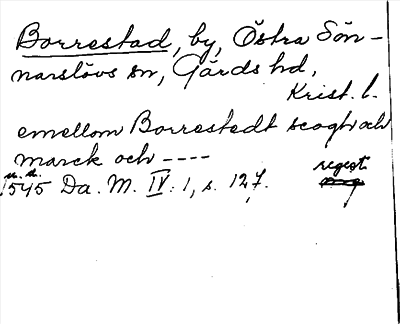 Borrestad, by, Östra Sön-
narslövs sn, Gärds hd,
Krist. l.
emellom Borrestedt scogh och
marck och ----
regest
u. å.
1545 Da. M. IV: 1, s. 127.